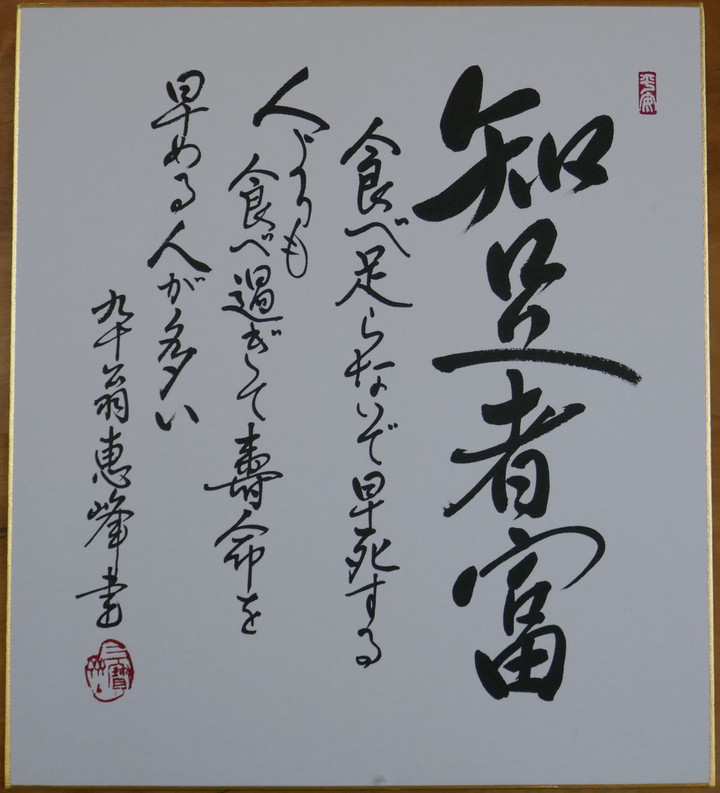 知足者富
食べ足らないで早死する
人よりも
食べ過ぎて壽命を
早める人が多い
九十翁恵峰書